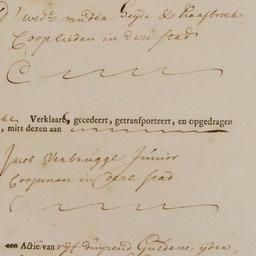 wed.e van den Heyde & Haasbroek
Cooplieden in deze stad
Verklaard, gecedeert, getransporteert, en opgedragen
, mits dezen aan
Jacob Verbrugge Junior
Coopman in deze stad
een Actie van vijf duijzend Guldens, ijder,